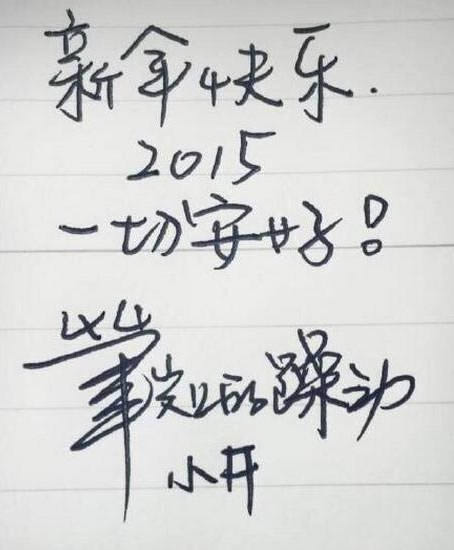 新年快乐.
2015
一切安好!
笔岚的躁动
小开